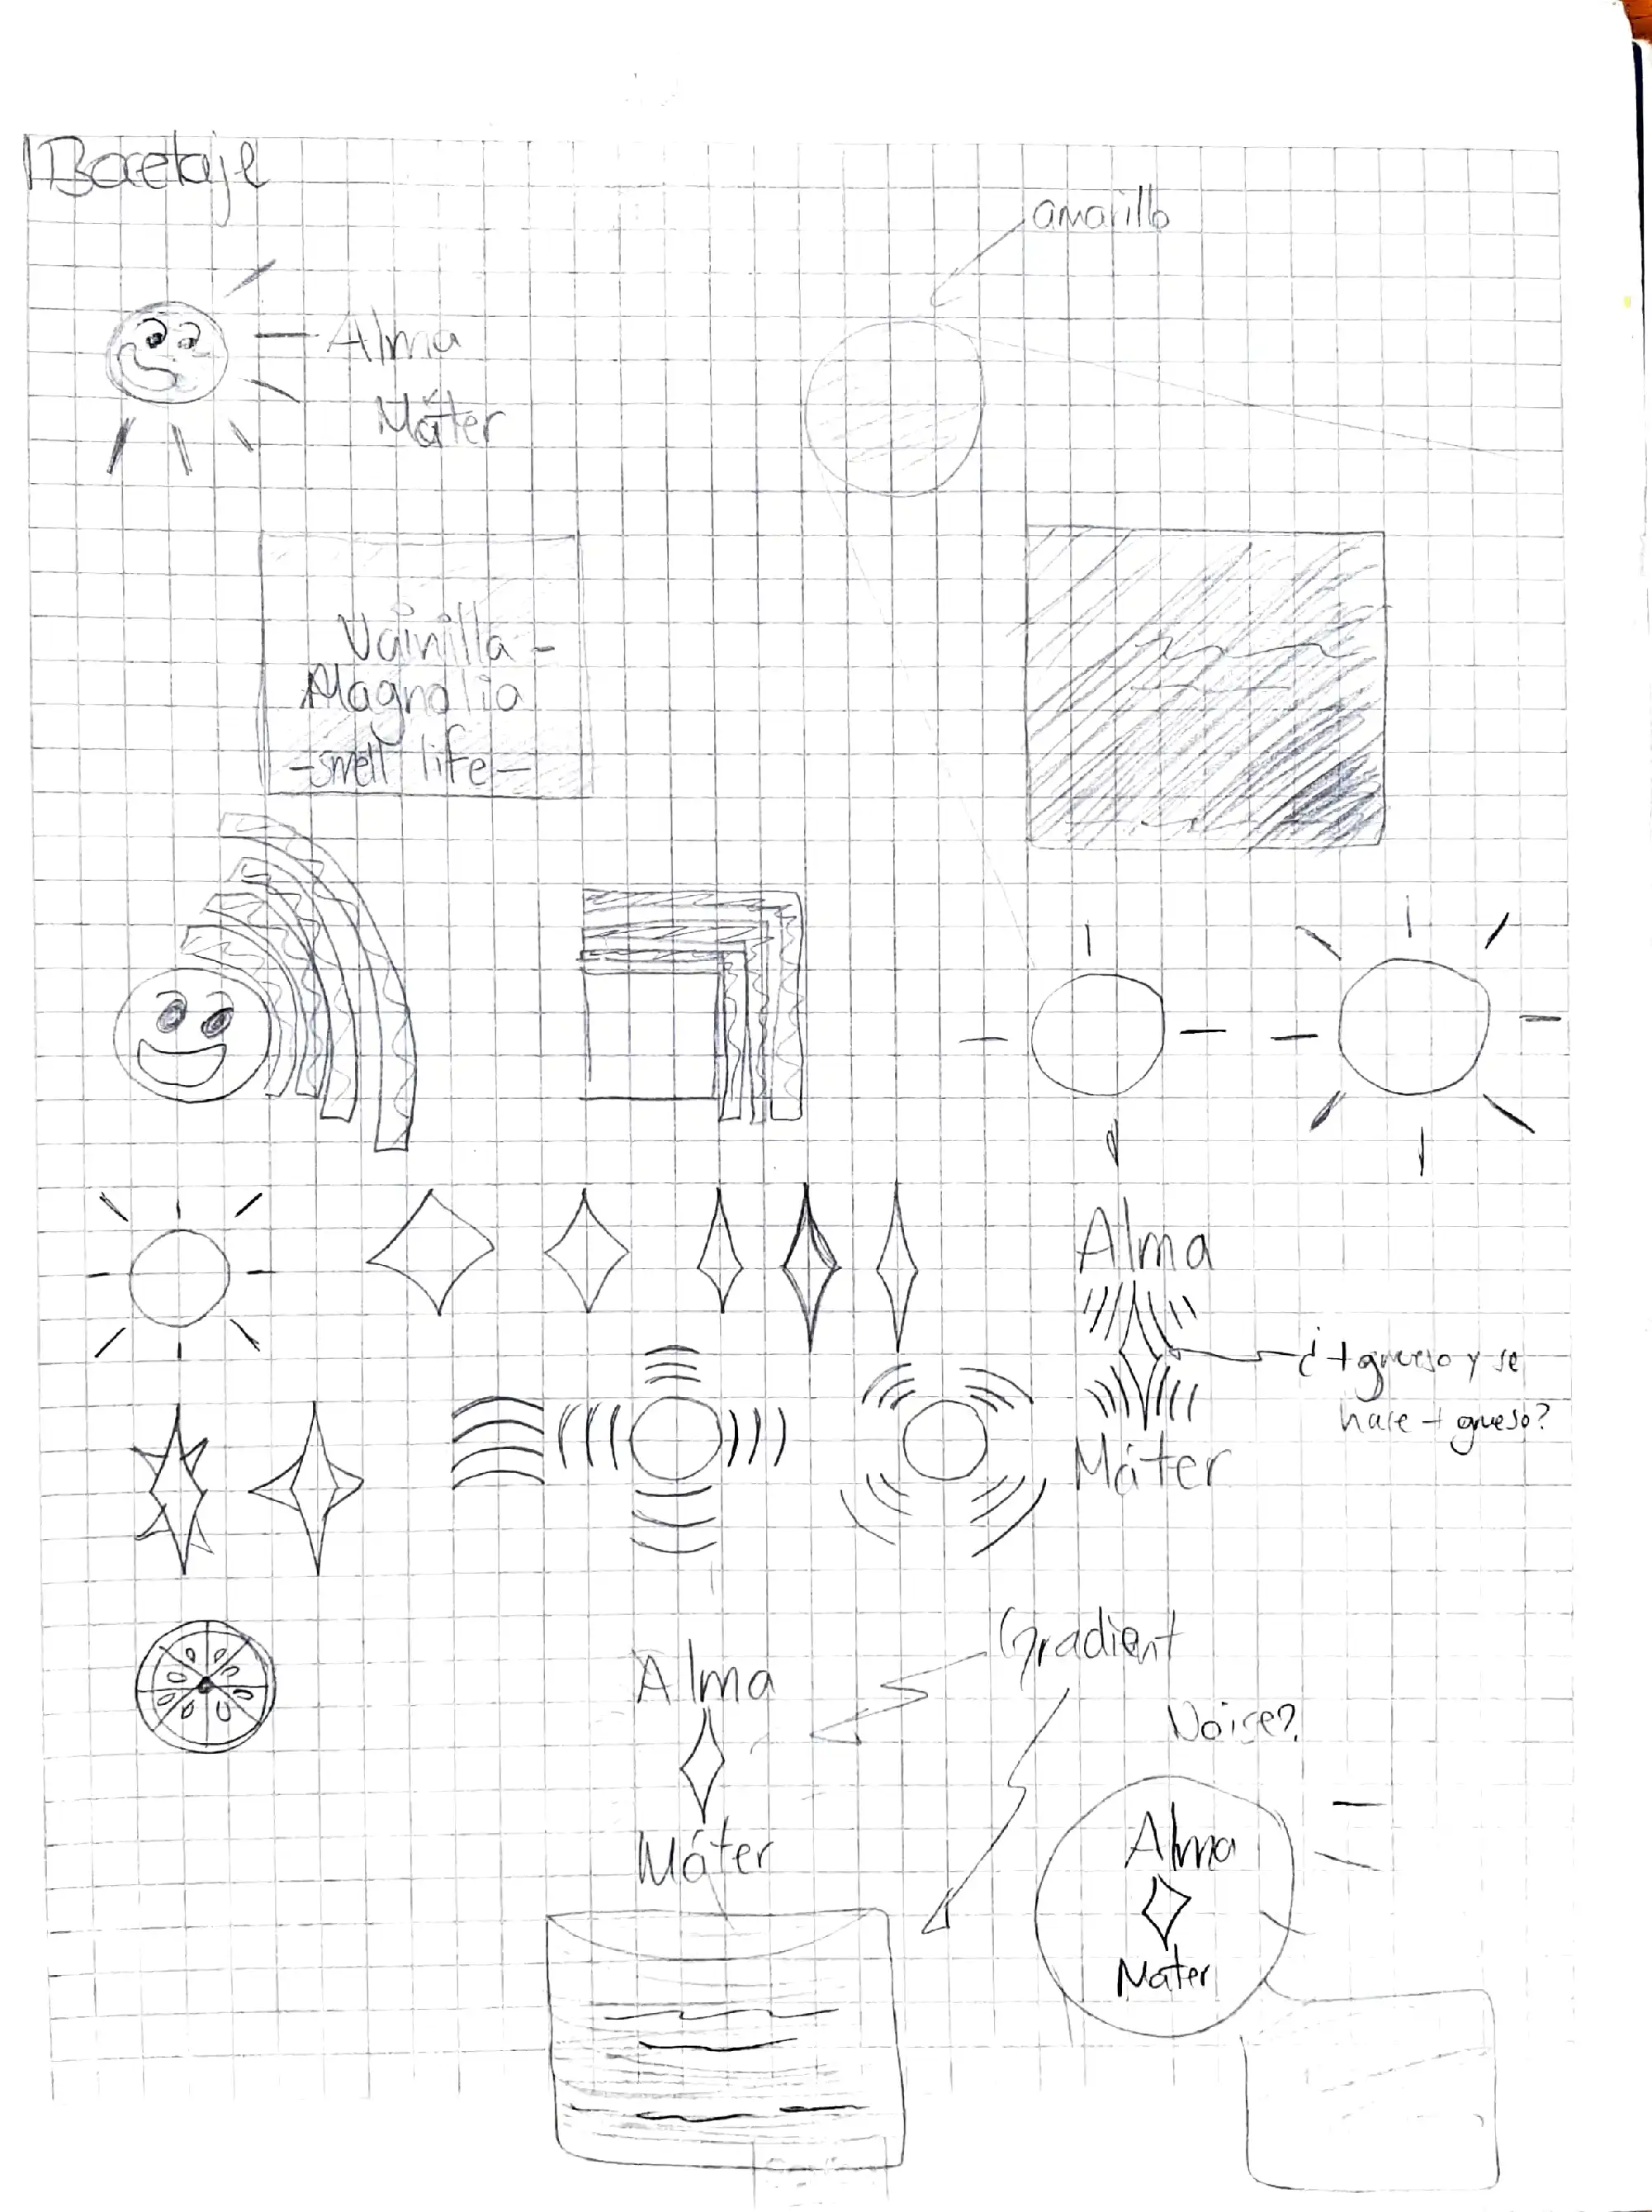 Bocetaje
amarillo
Alma
Máter
Vainilla -
Magnolia
- smell life -
Alma
¿+ grueso y se
hace + grueso?
Máter
Gradient
Alma
Noise?
Máter
Alma
Mater